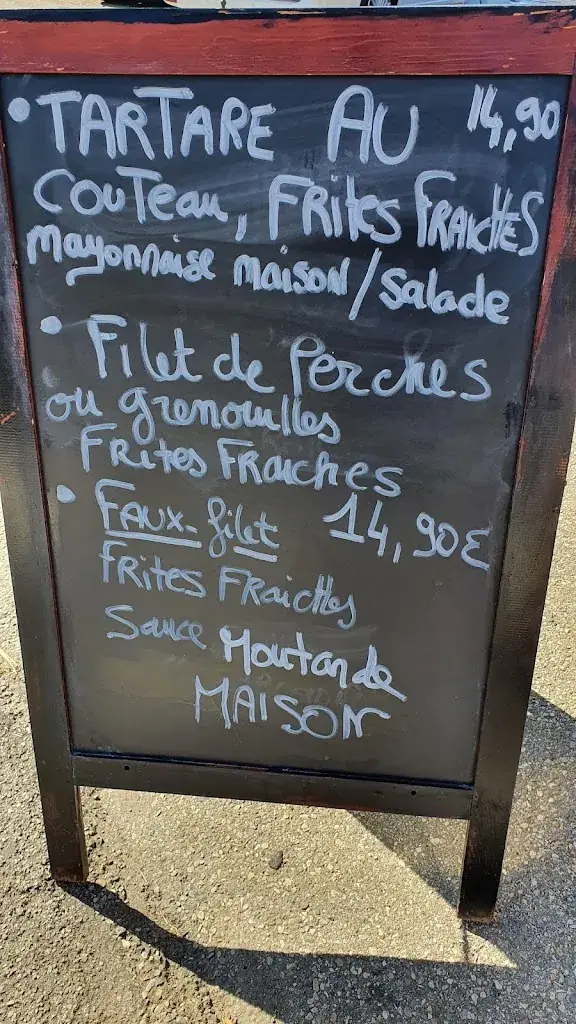 • TARTARE AU 14,90
COUTEAU, FRITES FRAICHES
mayonnaise maison/salade
• Filet de Perches
ou grenouilles
FRITES FRAICHES
• FAUX-filet 14,90€
FRITES FRAICHES
Sauce Moutarde
MAISON